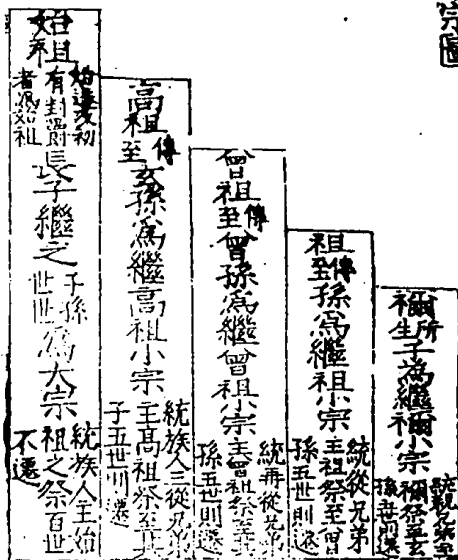 宗圖
禰所生子為繼禰小宗
祖傳至孫爲繼祖小宗統從兄弟主祖祭至曾孫五世則遷
曾祖傳至曾孫爲繼曾祖小宗統再從兄弟主曾祖祭至孫五世則遷
高祖傳至玄孫爲繼高祖小宗統族人三從兄弟主高祖祭至其子五世則遷
始祖始遷及初有封爵者爲始祖長子繼之子孫世世爲大宗統族人主始祖之祭百世不遷